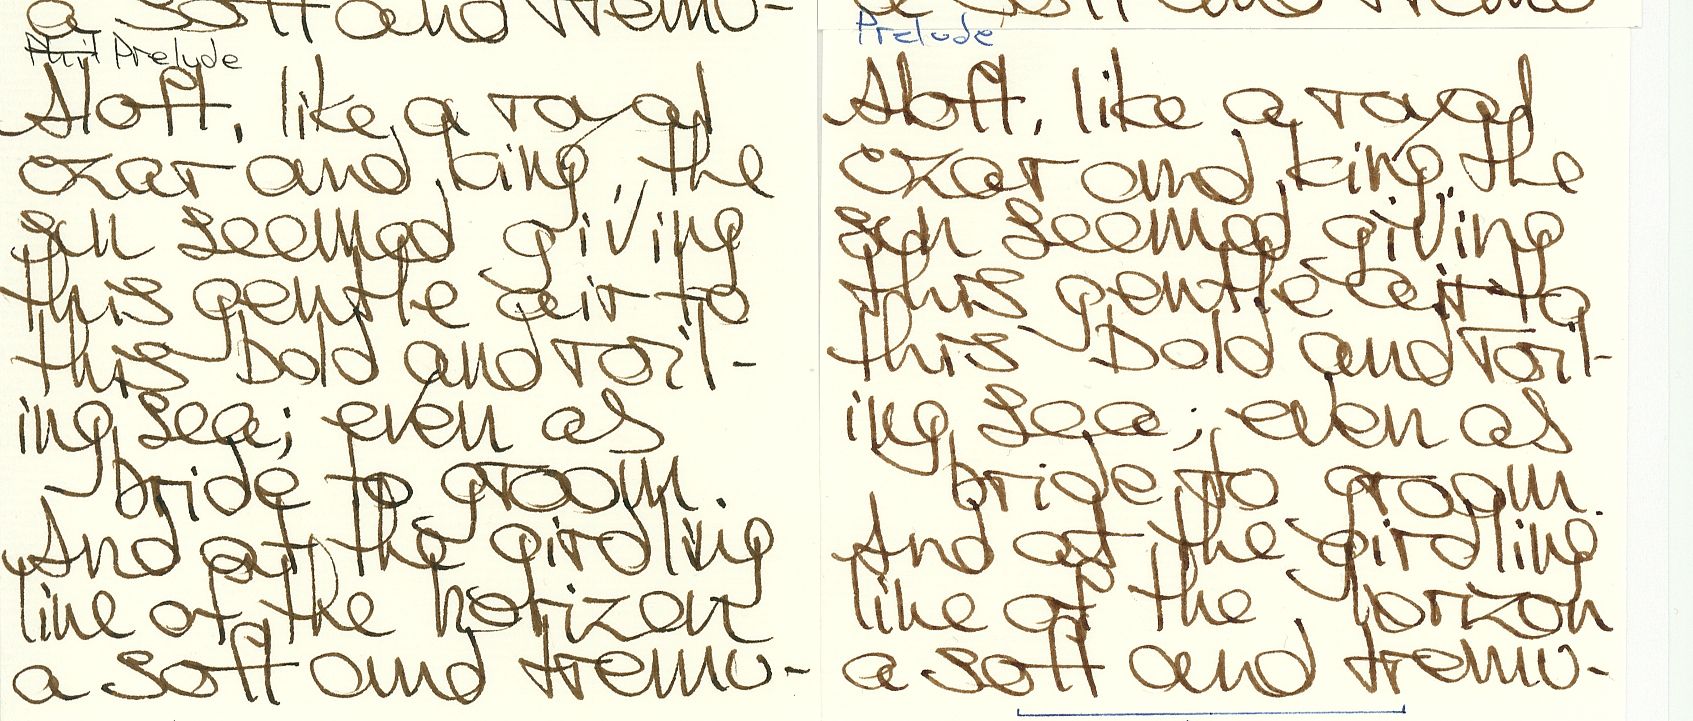 a soft and tremu-
Phil Prelude
Aloft, like a royal
czar and king, the
sun seemed giving
this gentle air to
this bold and roil-
ing sea; even as
bride to groom.
And at the girdling
line of the horizon
a soft and tremu-
a soft and tremu
Prelude
Aloft, like a royal
czar and king, the
sun seemed giving
this gentle air to
this bold and roil-
ing sea; even as
bride to groom.
And at the girdling
line of the horizon
a soft and tremu-